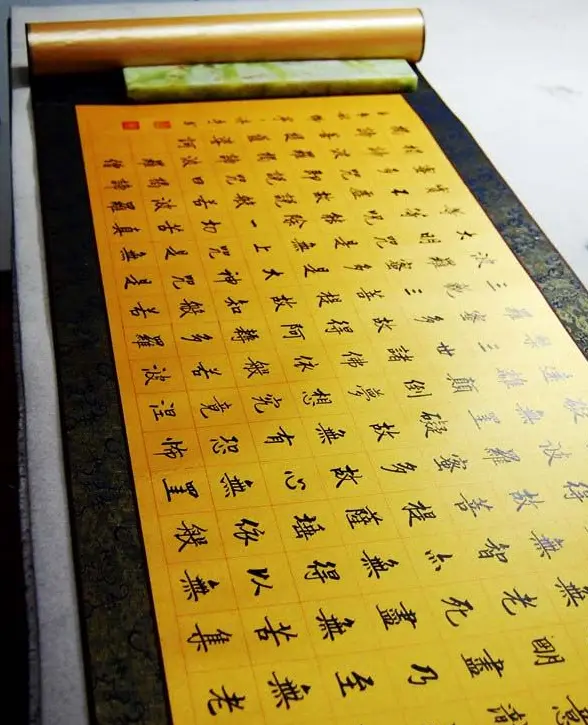 明盡乃至無老
無老死盡無苦集
無智亦無得以無
得故菩提薩埵依般
波羅蜜多故心無罣
故無罣礙故無有恐怖
離顛倒夢想究竟涅
三世諸佛依般若波
羅蜜多故得阿耨多羅
三藐三菩提故知般若
波羅蜜多是大神咒是
大明咒是無上咒是無
等等咒能除一切苦真
實不虛故說般若波羅
蜜多咒即說咒曰揭諦
揭諦波羅揭諦波羅僧
揭諦菩提薩婆訶